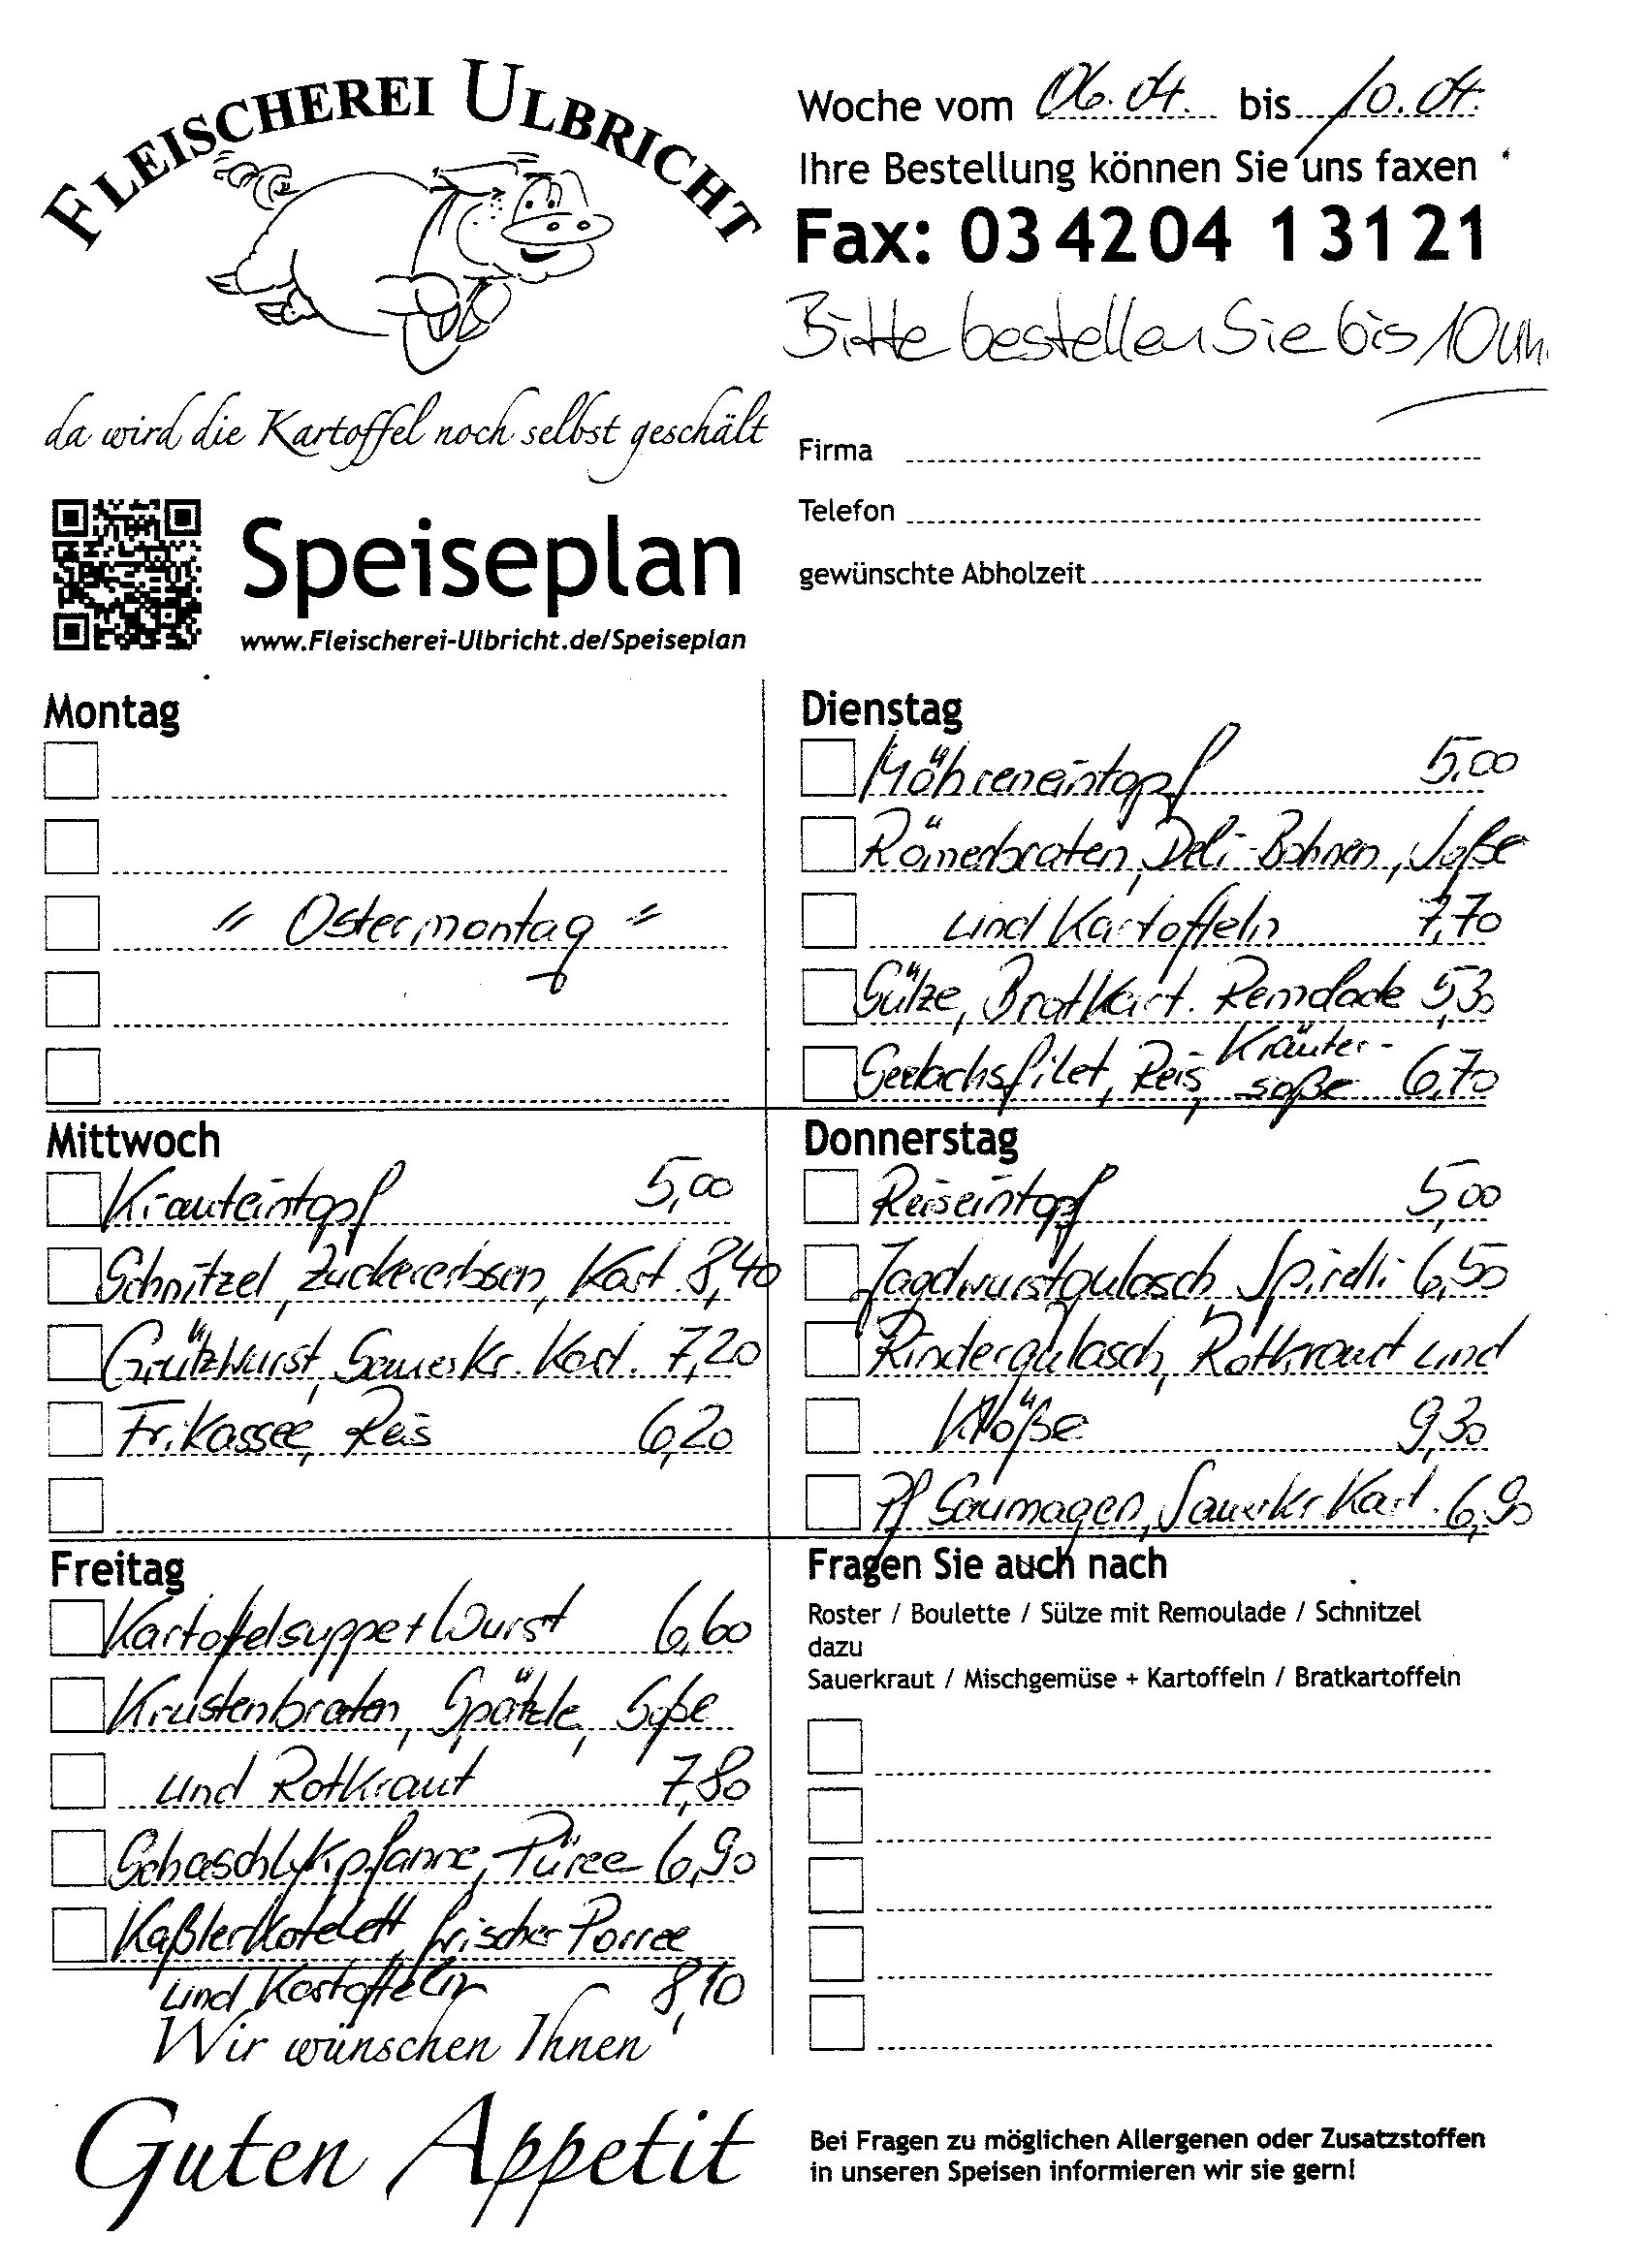 FLEISCHEREI ULBRICHT
da wird die Kartoffel noch selbst geschält
Speiseplan
www.Fleischerei-Ulbricht.de/Speiseplan
Woche vom 06.04. bis 10.04.
Ihre Bestellung können Sie uns faxen
Fax: 034204 13121
Bitte bestellen Sie bis 10 Uhr.
Firma
Telefon
gewünschte Abholzeit
Montag
" Ostermontag "
Dienstag
Möhreneintopf 5,00
Römerbraten, Deli-Bohnen, Soße
und Kartoffeln 7,70
Sülze, Bratkart. Remolade 5,30
Seelachsfilet, Reis, Kräuter-
soße 6,70
Mittwoch
Krauteintopf 5,00
Schnitzel, Zuckererbsen, Kart. 8,40
Grützwurst, Sauerkr. Kart. 7,20
Frikassee, Reis 6,20
Donnerstag
Reiseintopf 5,00
Jagdwurstgulasch, Spirelli 6,50
Rindergulasch, Rotkraut und
Klöße 9,30
Pf Saumagen, Sauerkr Kart. 6,90
Freitag
Kartoffelsuppe + Wurst 6,60
Krustenbraten, Spätzle, Soße
und Rotkraut 7,80
Schaschlykpfanne, Püree 6,90
Kaßlerkotelett, frischer Porree
und Kartoffeln 8,10
Fragen Sie auch nach
Roster / Boulette / Sülze mit Remoulade / Schnitzel
dazu
Sauerkraut / Mischgemüse + Kartoffeln / Bratkartoffeln
Wir wünschen Ihnen
Guten Appetit
Bei Fragen zu möglichen Allergenen oder Zusatzstoffen
in unseren Speisen informieren wir sie gern!